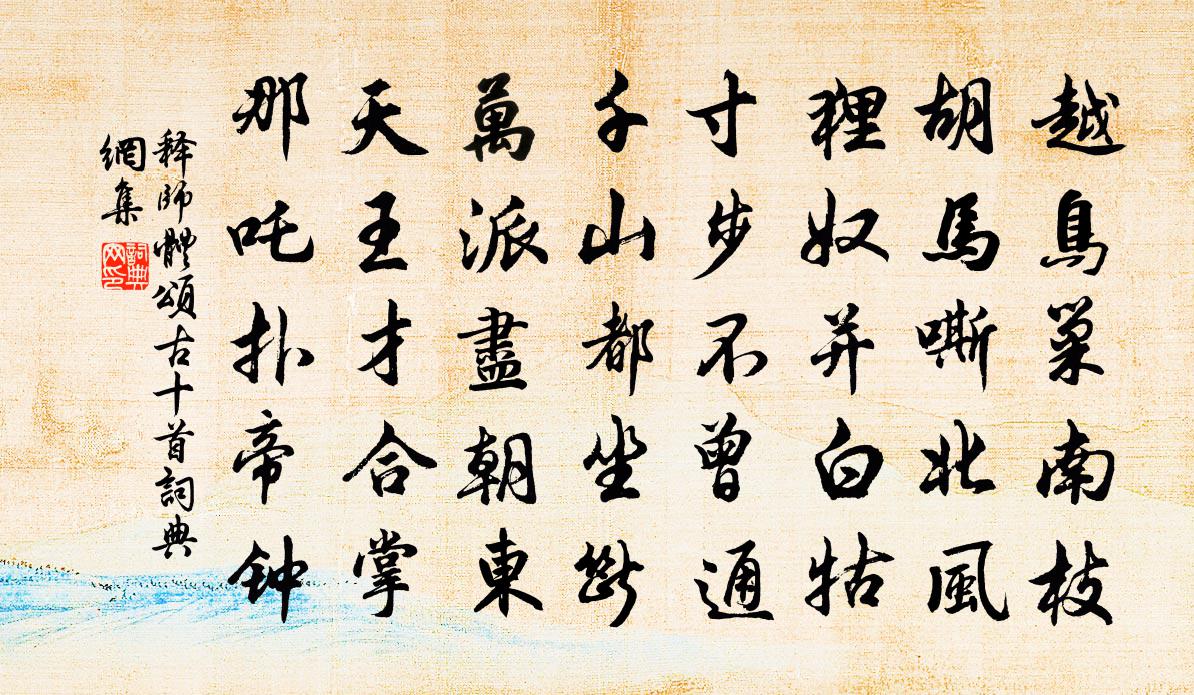 越鳥巢南枝
胡馬嘶北風
狸奴并白牯
寸步不曾通
千山都坐斷
萬派盡朝東
天王才合掌
那吒扑帝钟
釋師體頌古十首詞典
網集
詞典
网印